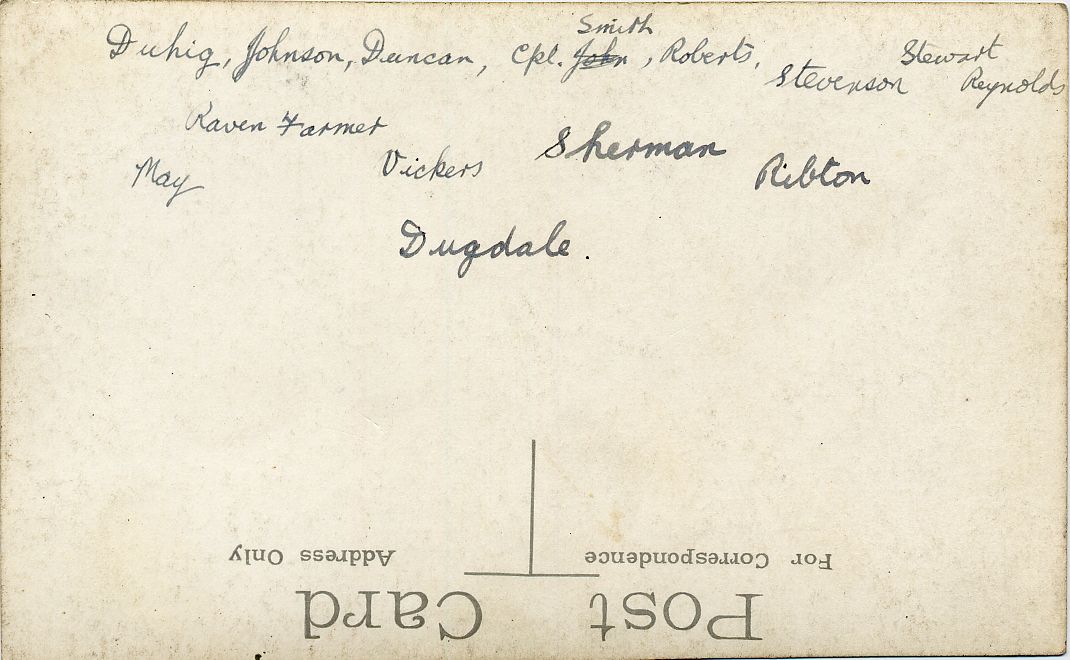 Smith
Duhig, Johnson, Duncan, Cpl. John, Roberts,
Stewart
Stevenson Reynolds
Raven Farmer
Sherman
May Vickers Ribton
Dugdale.
For Correspondence Address Only
Post Card